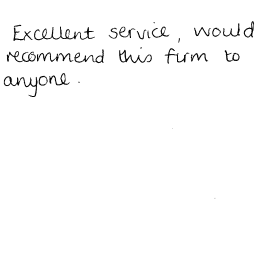 Excellent service, would
recommend this firm to
anyone.